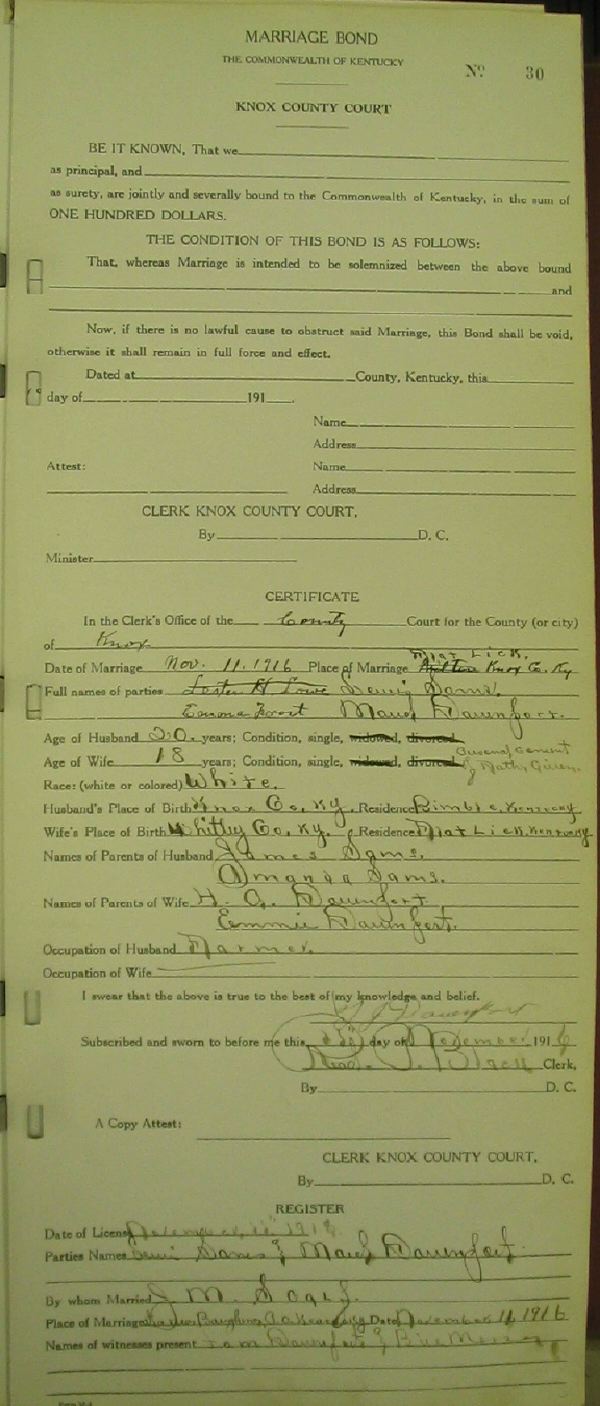 MARRIAGE BOND
THE COMMONWEALTH OF KENTUCKY
No 30
KNOX COUNTY COURT
BE IT KNOWN, That we
as principal, and
as surety, are jointly and severally bound to the Commonwealth of Kentucky, in the sum of
ONE HUNDRED DOLLARS.
THE CONDITION OF THIS BOND IS AS FOLLOWS:
That, whereas Marriage is intended to be solemnized between the above bound
and
Now, if there is no lawful cause to obstruct said Marriage, this Bond shall be void,
otherwise it shall remain in full force and effect.
Dated at County, Kentucky, this
day of 191
Name
Address
Attest: Name
Address
CLERK KNOX COUNTY COURT.
By D. C.
Minister
CERTIFICATE
In the Clerk's Office of the County Court for the County (or city)
of Knox
Flat Lick.
Date of Marriage Nov. 11, 1916 Place of Marriage Knox Co. Ky
Full names of parties Sams.
Emma Maud Davenport.
Age of Husband 20 years; Condition, single, widowed, divorced
Age of Wife 18 years; Condition, single, widowed, divorced
Race: (white or colored) White.
Husband's Place of Birth Knox Co, Ky. Residence Bimble, Kentucky
Wife's Place of Birth Whitley Co, Ky. Residence Flat Lick, Kentucky
Names of Parents of Husband James Sams.
Amanda Sams.
Names of Parents of Wife Davenport
Emmie Davenport.
Occupation of Husband Farmer.
Occupation of Wife
I swear that the above is true to the best of my knowledge and belief.
Davenport
Subscribed and sworn to before me this day of November 1916
Clerk,
By D. C.
A Copy Attest:
CLERK KNOX COUNTY COURT.
By D. C.
REGISTER
Date of License November 11 191
Parties Names Sams & Maud Davenport
By whom Married J. M.
Place of Marriage Date November 11 1916
Names of witnesses present Sam Davenport &